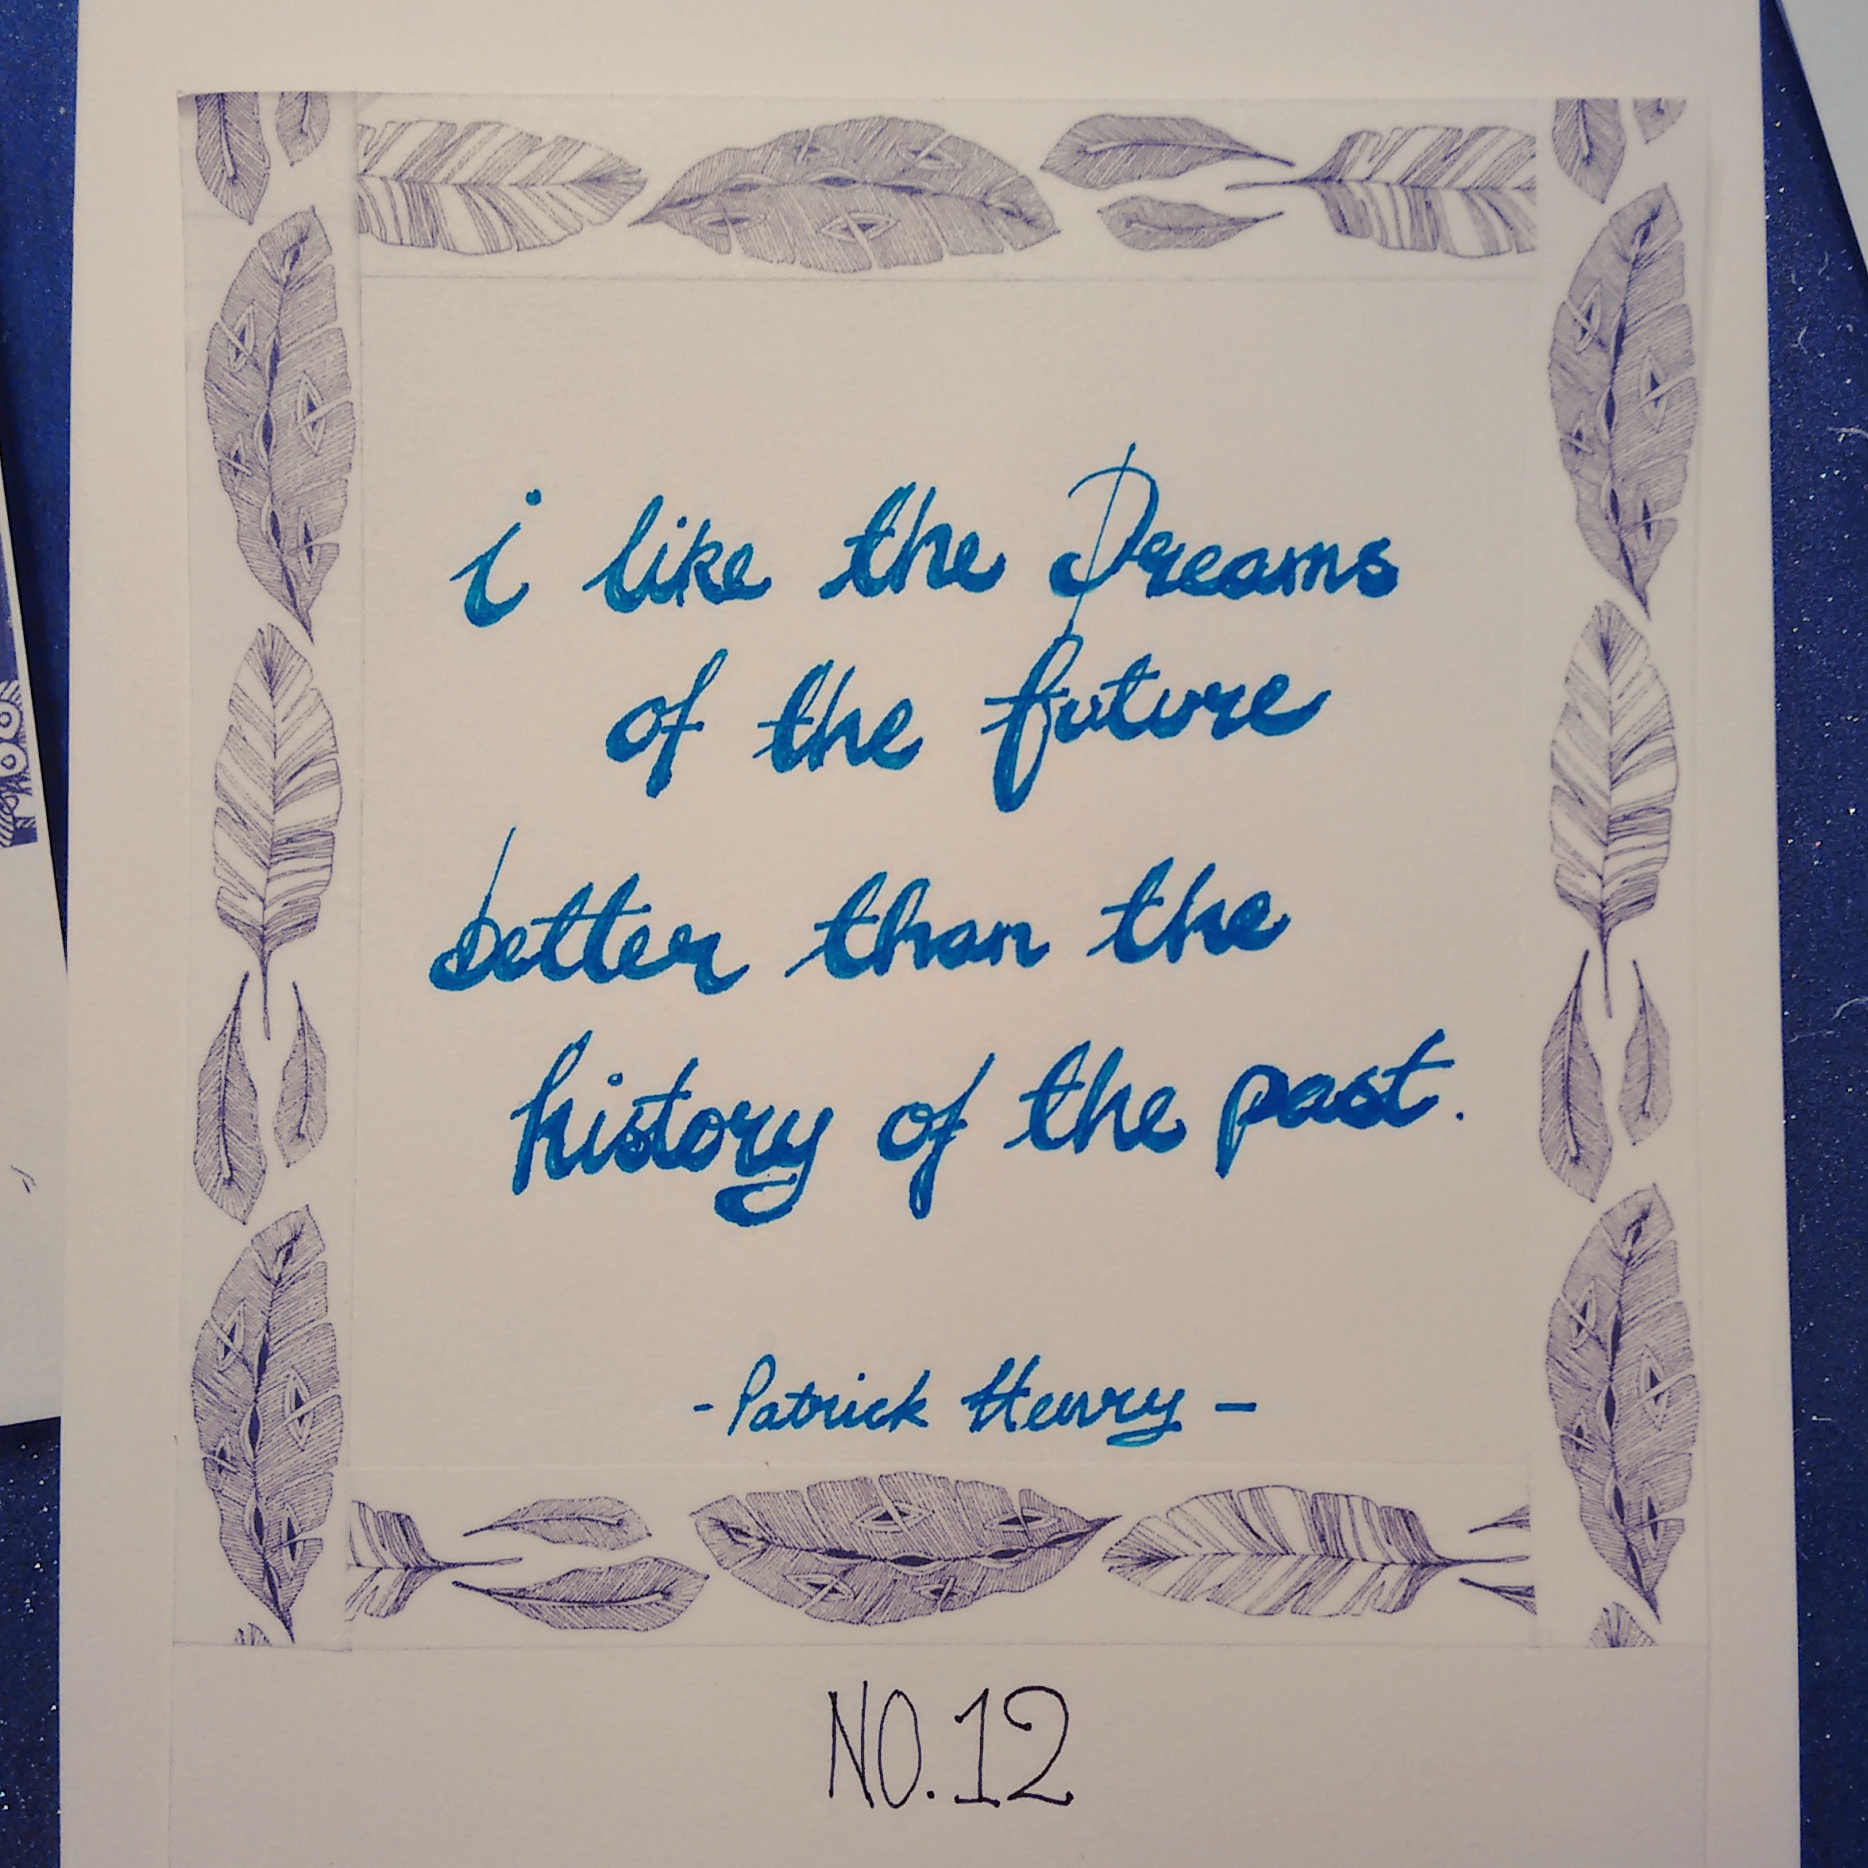 i like the Dreams
of the future
better than the
history of the past.
- Patrick Henry -
NO. 12